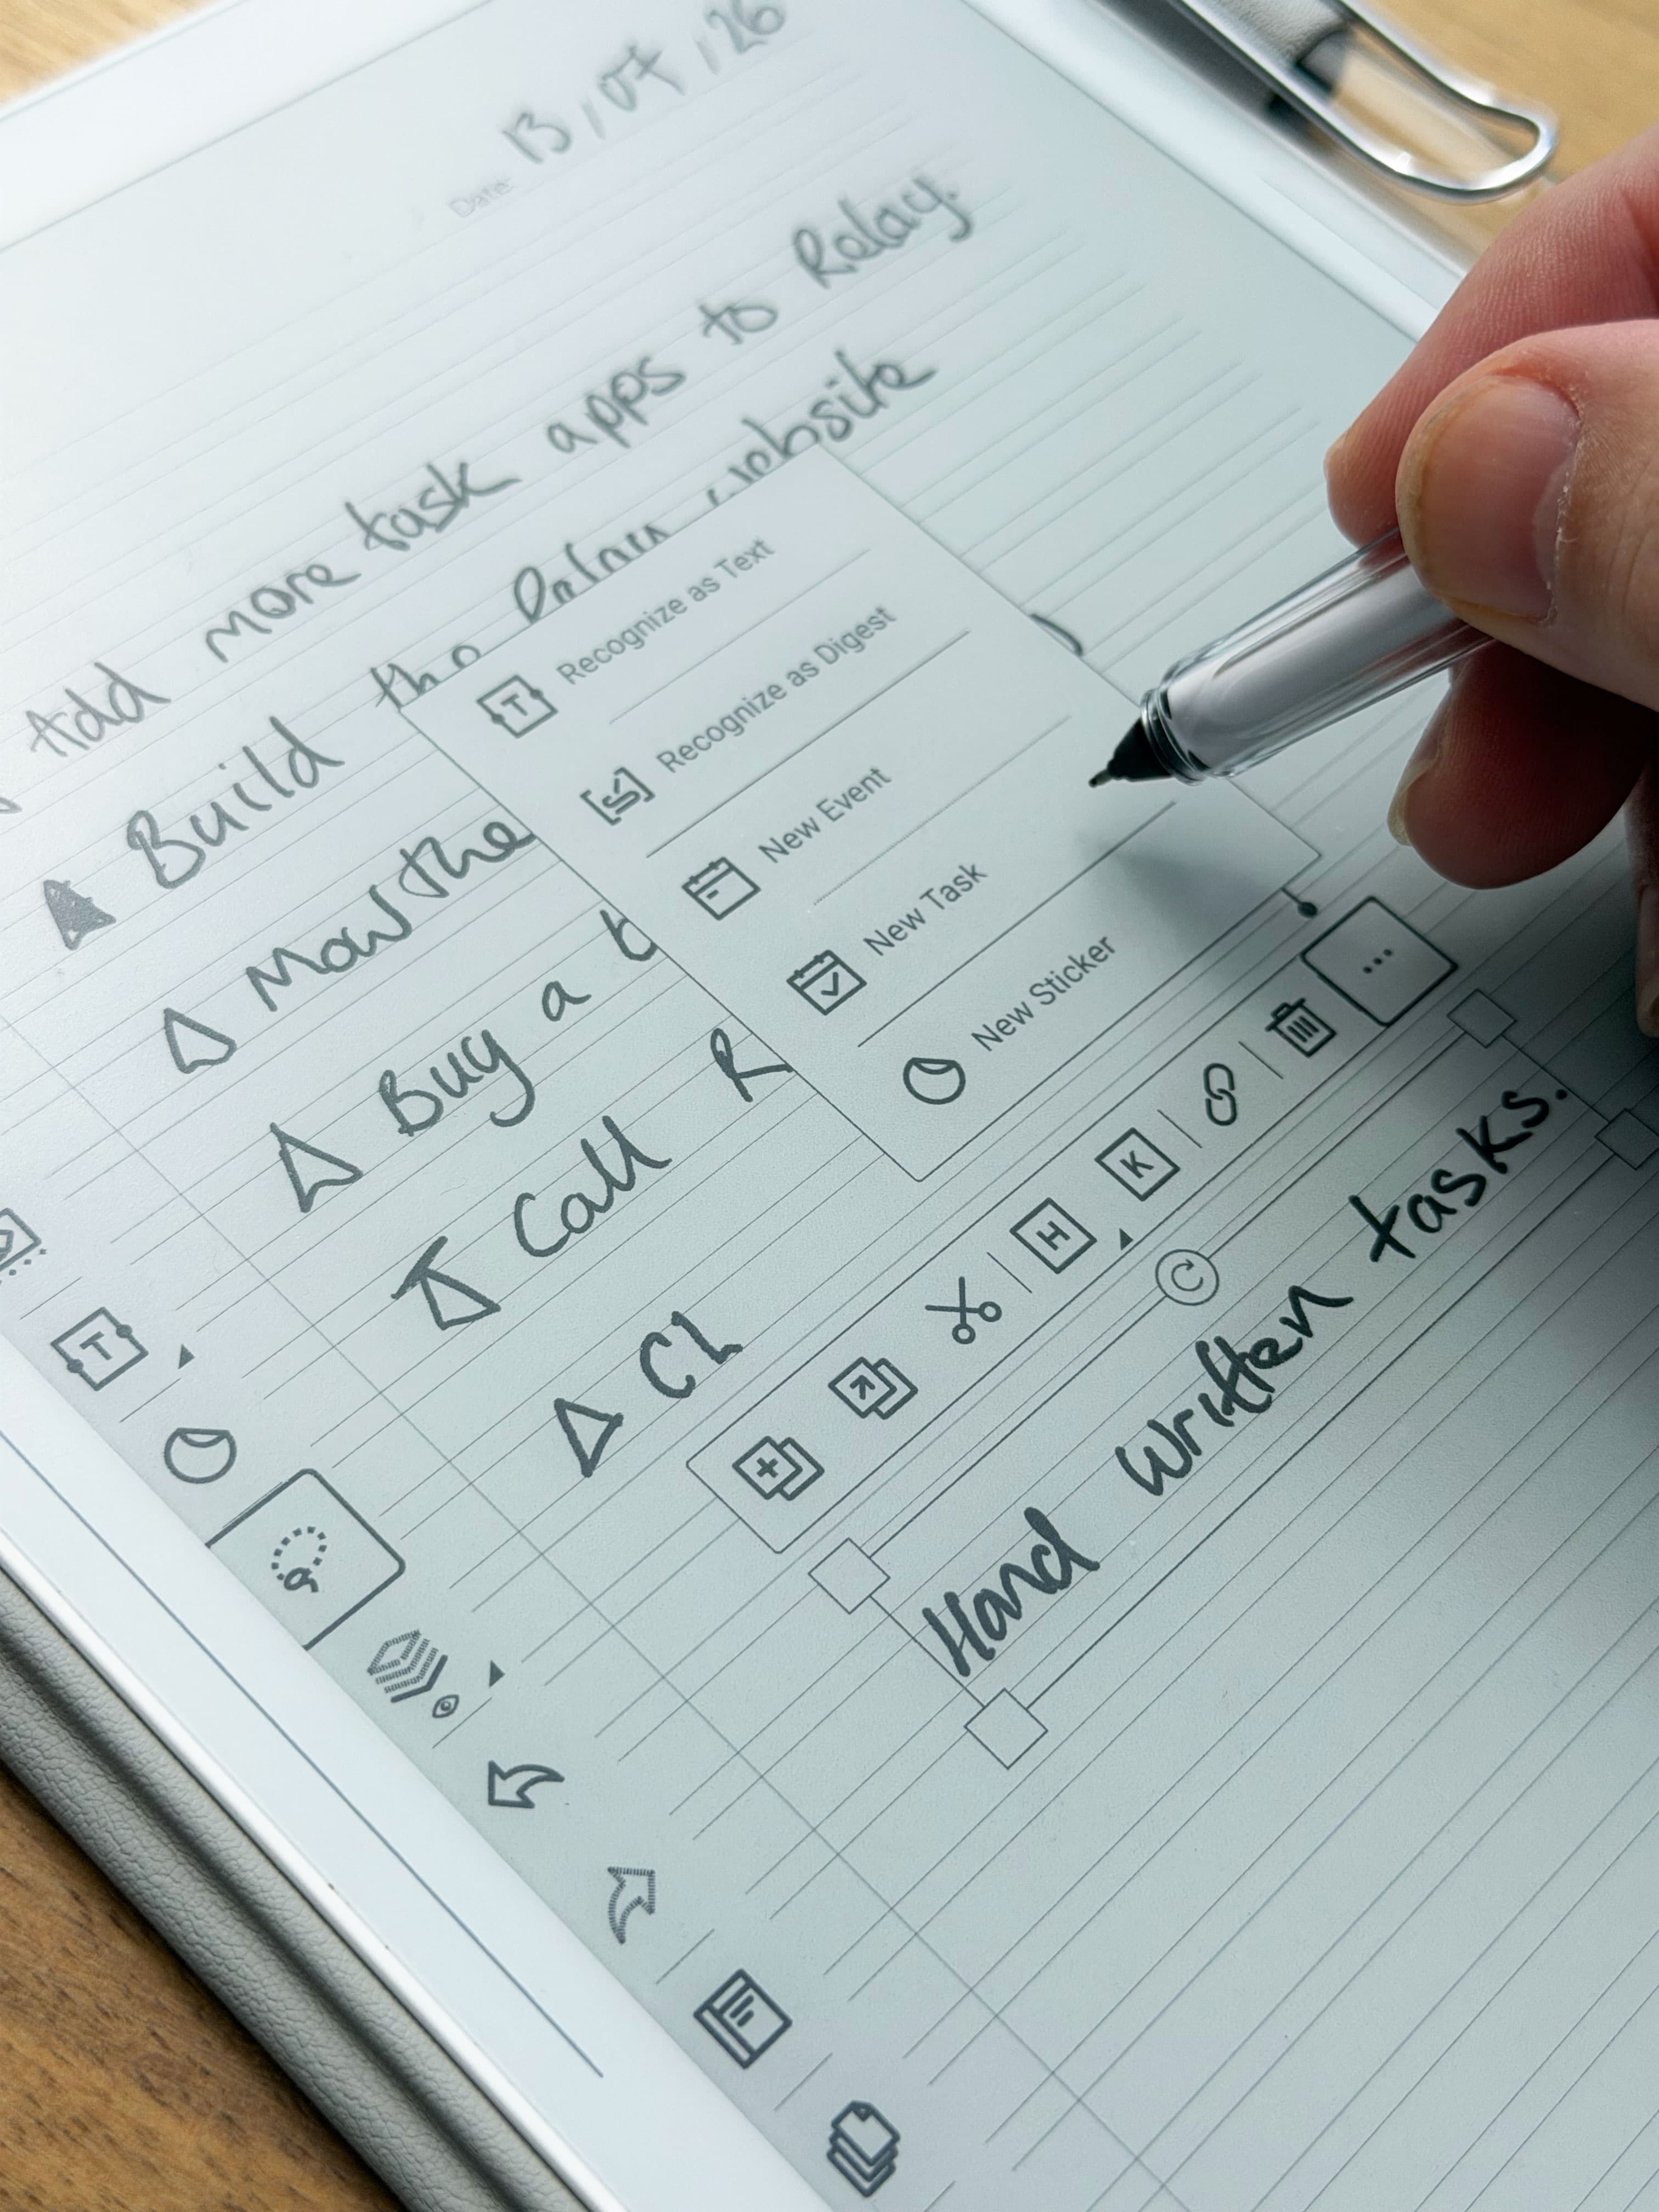 Date: 13/07/26
Add more task apps to Relay.
Build the Relay website
Mow the
Buy a b
Call R
Cl
Recognize as Text
Recognize as Digest
New Event
New Task
New Sticker
H K
Hand written tasks.